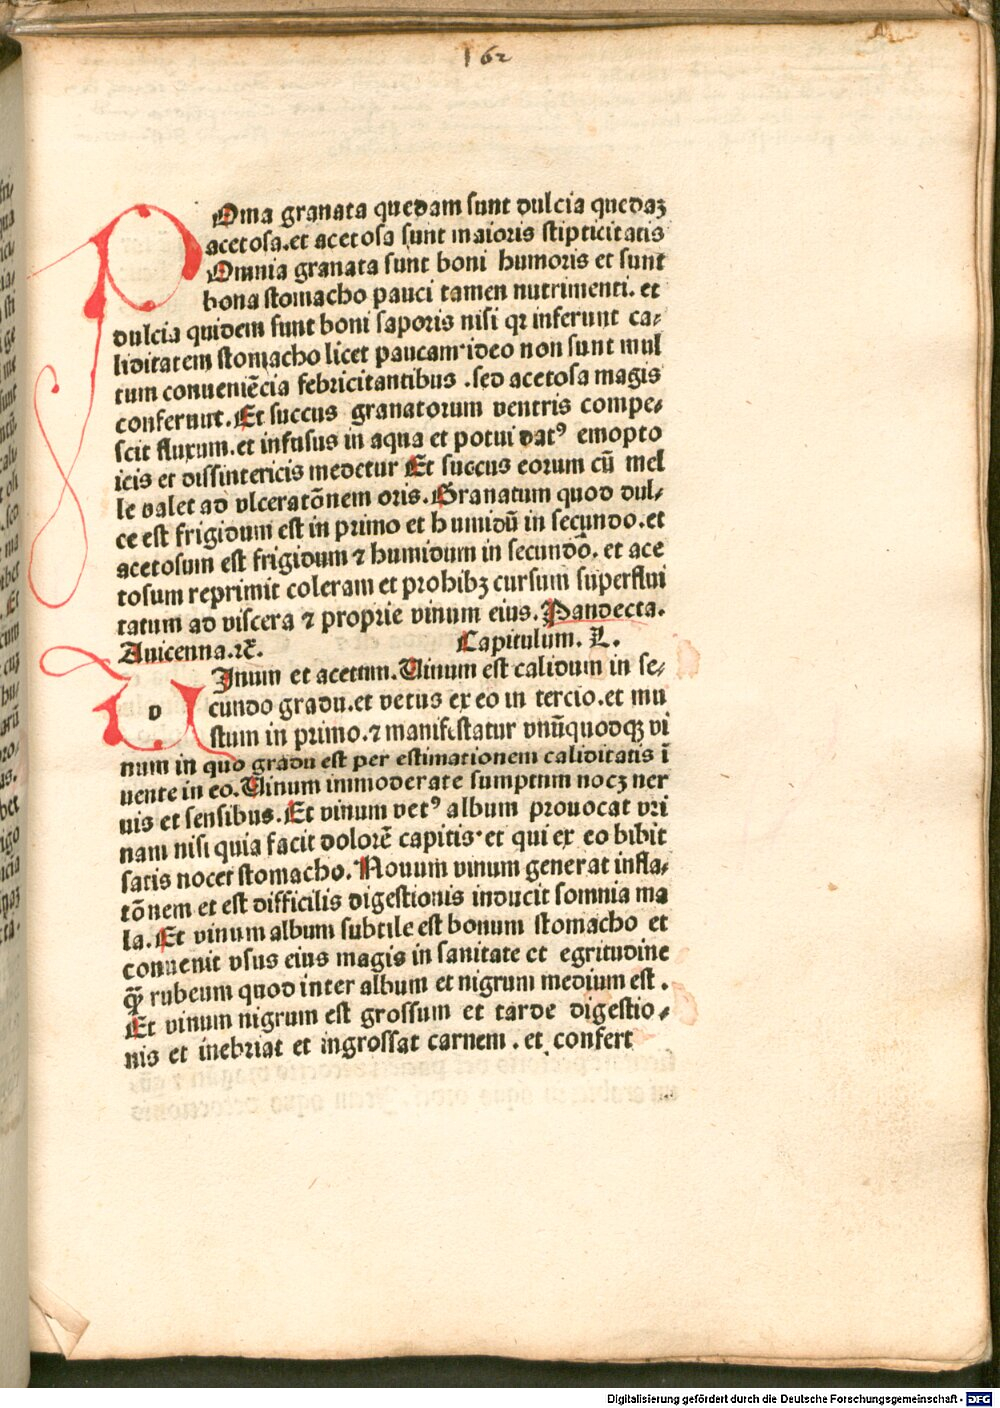 162
POma granata quedam sunt dulcia quedaꝫ
acetosa.et acetosa sunt maioris stipticitatis
Omnia granata sunt boni humoris et sunt
bona stomacho pauci tamen nutrimenti. et
dulcia quidem sunt boni saporis nisi qꝛ inferunt ca⸗
liditatem stomacho licet paucam·ideo non sunt mul
tum conueniẽcia febricitantibus .sed acetosa magis
conferunt.Et succus granatorum ventris compe⸗
scit fluxum.et infusus in aqua et potui datꝰ emopto
icis et dissintericis medetur Et succus eorum cũ mel
le valet ad vlceratõnem oris.Granatum quod dul⸗
ce est frigidum est in primo et humidũ in secundo.et
acetosum est frigidum ⁊ humidum in secundo. et ace
tosum reprimit coleram et prohibꝫ cursum superflui
tatum ad viscera ⁊ proprie vinum eius.Pandecta.
Auicenna.ꝛc̃. Capitulum. L.
v
VInum et acetum.Vinum est calidum in se⸗
cundo gradu.et vetus ex eo in tercio.et mu
stum in primo.⁊ manifestatur vnũquodqꝫ vi
num in quo gradu est per estimationem caliditatis ĩ
uente in eo.Vinum immoderate sumptum nocꝫ ner
uis et sensibus.Et vinum vetꝰ album prouocat vri
nam nisi quia facit dolorẽ capitis·et qui ex eo bibit
satis nocet stomacho.Nouum vinum generat infla⸗
tõnem et est difficilis digestionis inducit somnia ma
la.Et vinum album subtile est bonum stomacho et
conuenit vsus eius magis in sanitate et egritudine
q̃ꝫ rubeum quod inter album et nigrum medium est .
Et vinum nigrum est grossum et tarde digestio⸗
nis et inebriat et ingrossat carnem . et confert
Digitalisierung gefördert durch die Deutsche Forschungsgemeinschaft - DFG